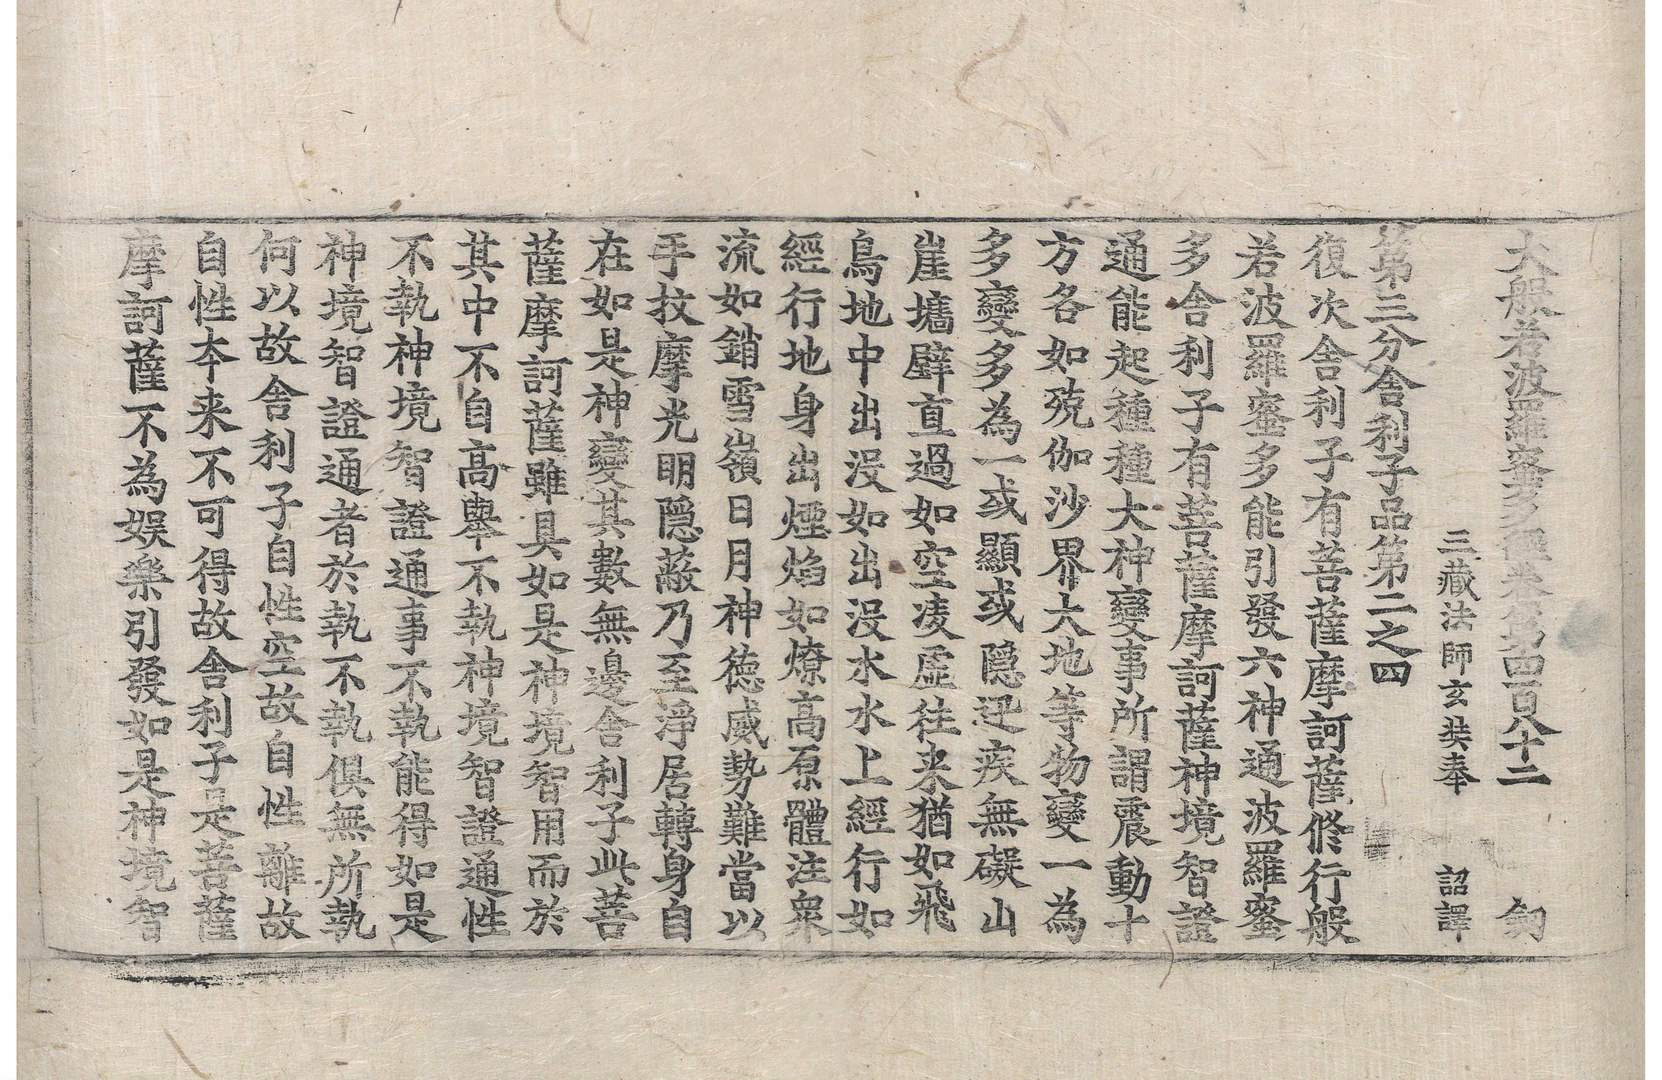 大般若波羅蜜多經卷第四百八十二 劒
三藏法師玄奘奉 詔譯
第三分舍利子品第二之四
復次舍利子有菩薩摩訶薩修行般
若波羅蜜多能引發六神通波羅蜜
多舍利子有菩薩摩訶薩神境智證
通能起種種大神變事所謂震動十
方各如殑伽沙界大地等物變一為
多變多為一或顯或隱迅疾無礙山
崖墻壁直過如空凌虛往来猶如飛
鳥地中出沒如出沒水水上經行如
經行地身出煙焰如燎高原體注衆
流如銷雪嶺日月神德威勢難當以
手抆摩光明隱蔽乃至淨居轉身自
在如是神變其數無邊舍利子此菩
薩摩訶薩雖具如是神境智用而於
其中不自高舉不執神境智證通性
不執神境智證通事不執能得如是
神境智證通者於執不執俱無所執
何以故舍利子自性空故自性離故
自性夲来不可得故舍利子是菩薩
摩訶薩不為娛樂引發如是神境智